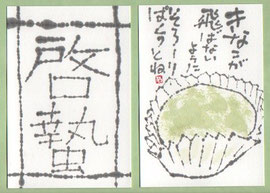 啓蟄
きなこが
飛ばない
ように
そろ〜り
ぱくっとね